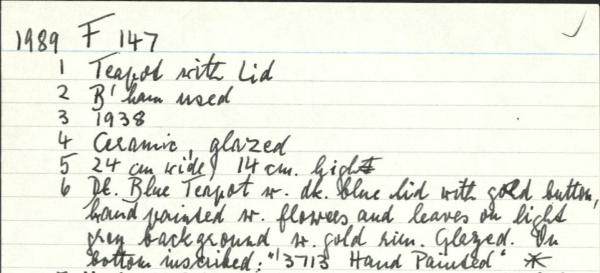 1989 F 147
1 Teapot with Lid
2 B'ham used
3 1938
4 Ceramic, glazed
5 24 cm wide, 14 cm. high
6 Dk. Blue Teapot w. dk. blue lid with gold button,
hand painted w. flowers and leaves on light
grey background w. gold rim. Glazed. On
bottom inscribed: "13713 Hand Painted" *